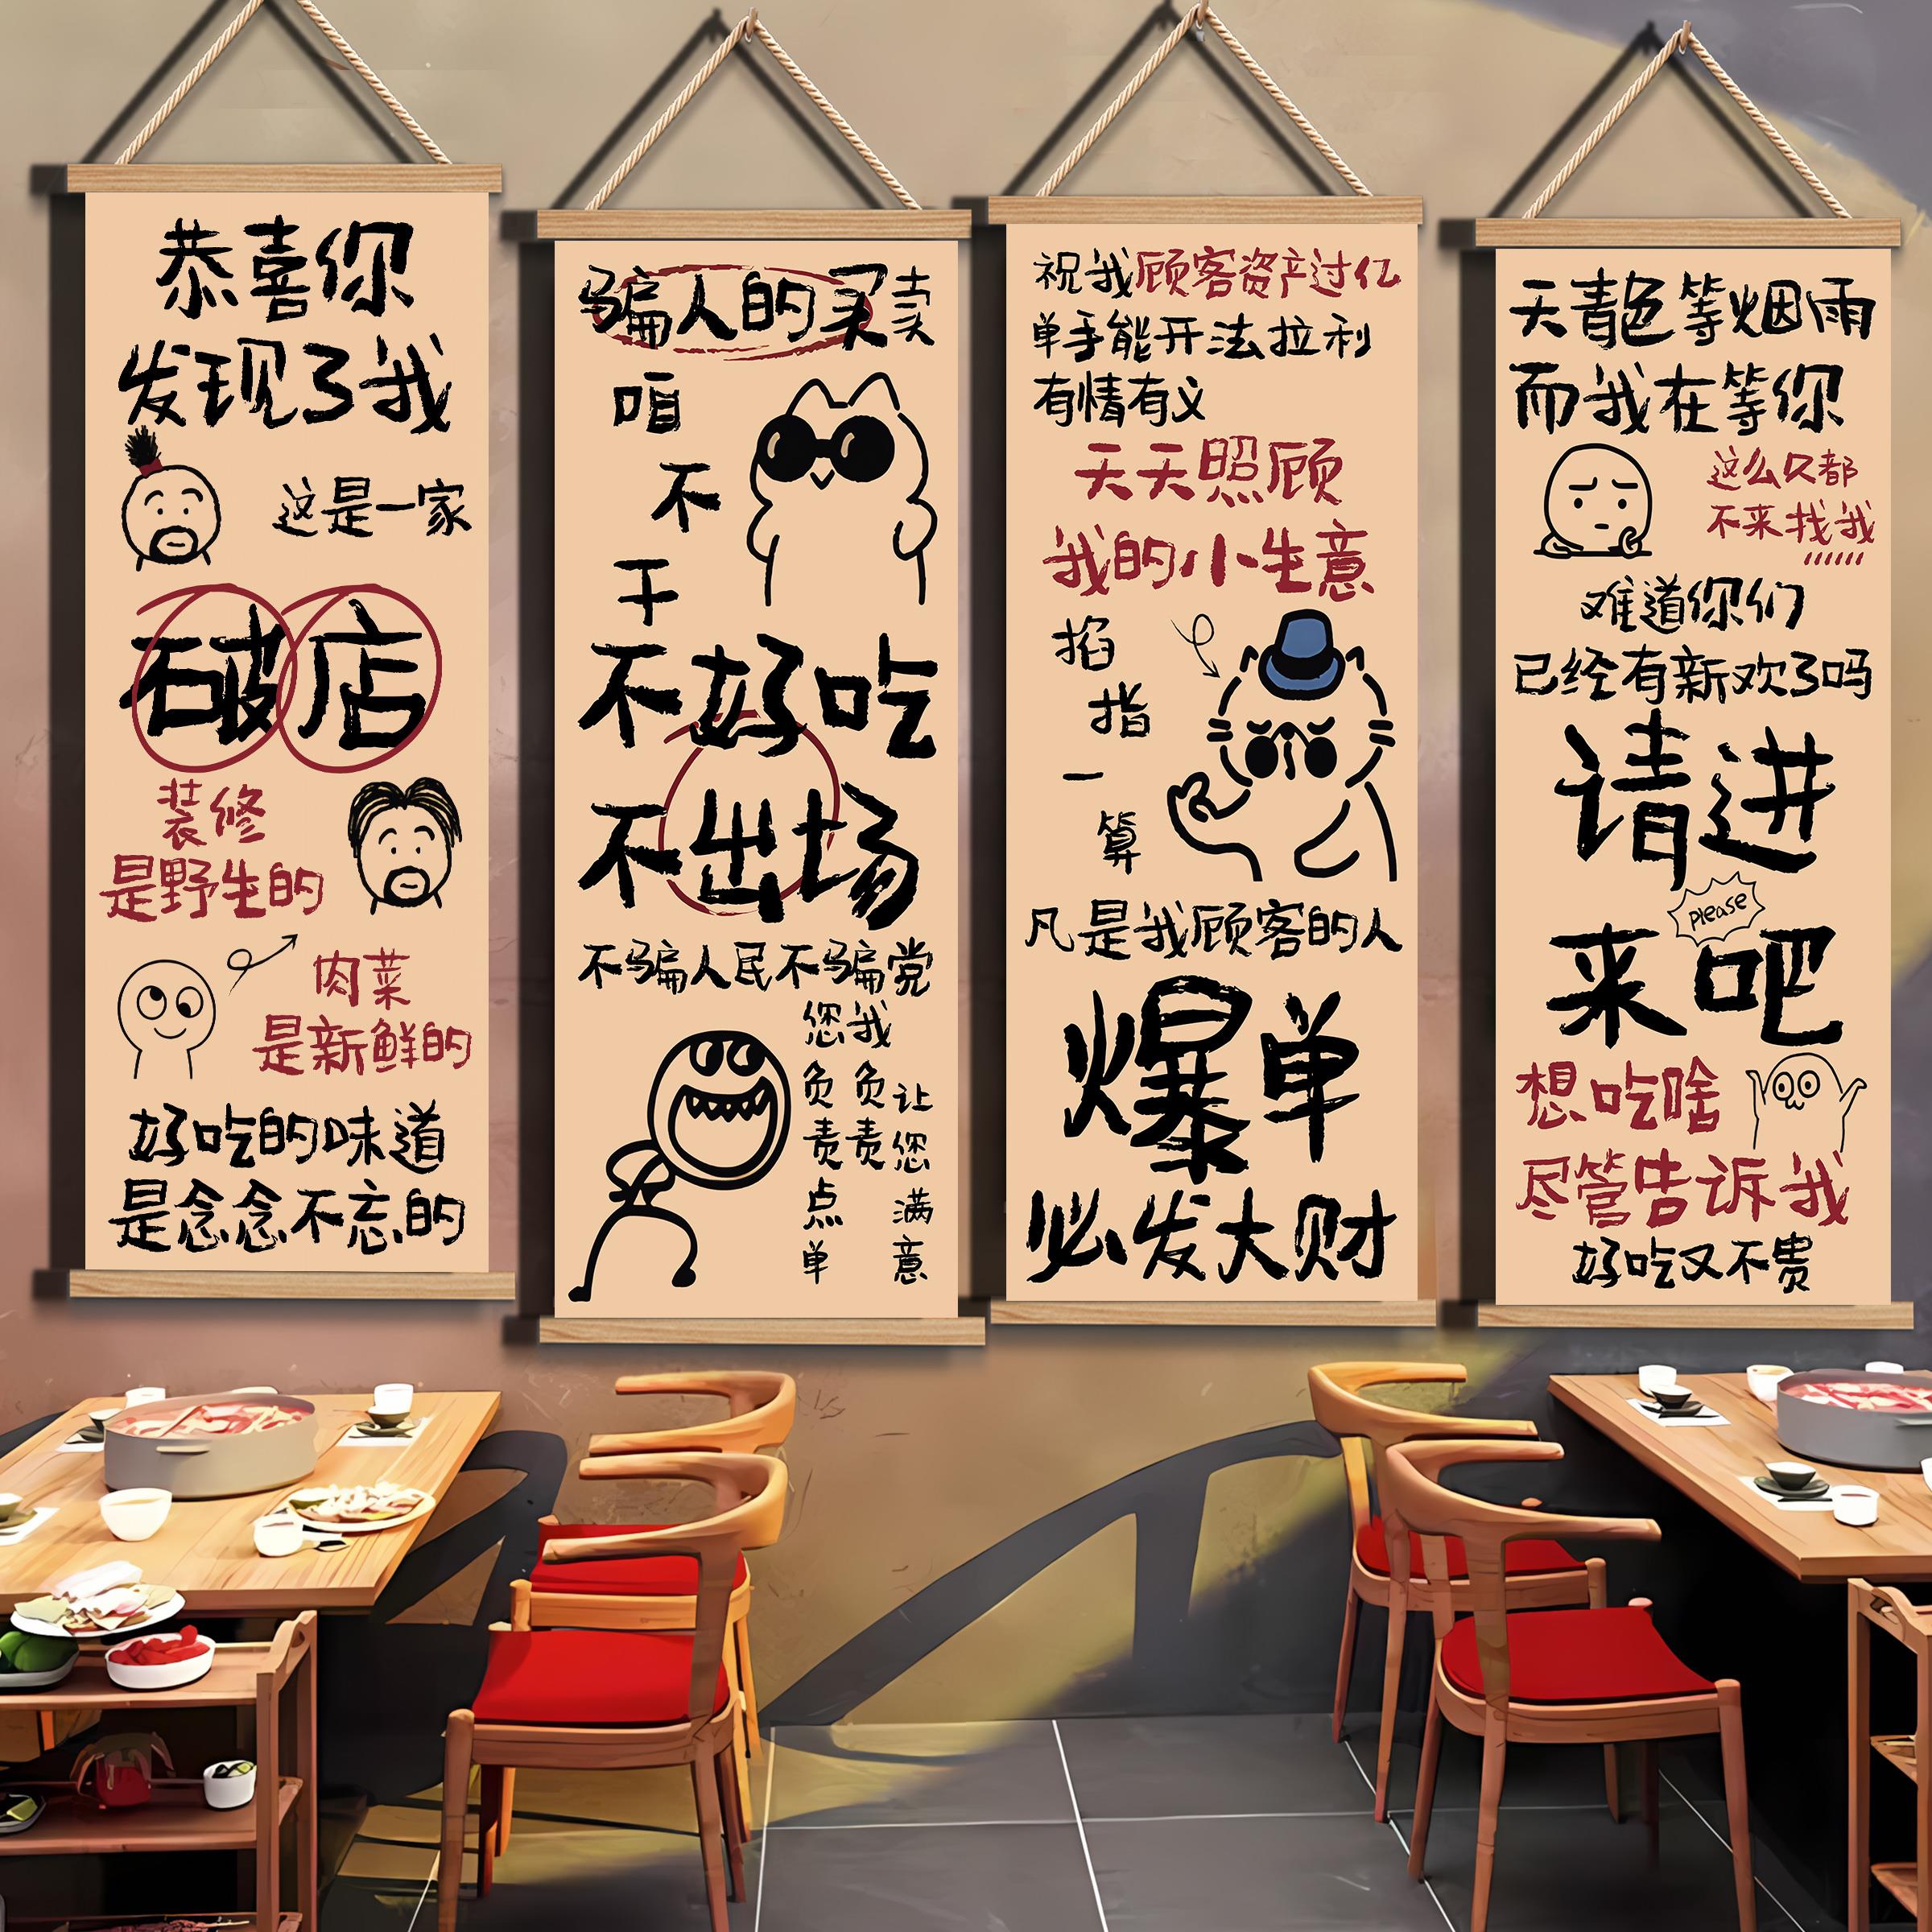 恭喜你
发现了我
这是一家
破店
装修
是野生的
肉菜
是新鲜的
好吃的味道
是念念不忘的
骗人的买卖
咱
不
干
不好吃
不出场
不骗人民不骗党
您负责点单
我负责
让您满意
祝我顾客资产过亿
单手能开法拉利
有情有义
天天照顾
我的小生意
掐
指
一
算
凡是我顾客的人
爆单
必发大财
天青色等烟雨
而我在等你
这么久都
不来找我
难道你们
已经有新欢了吗
请进
please
来吧
想吃啥
尽管告诉我
好吃又不贵